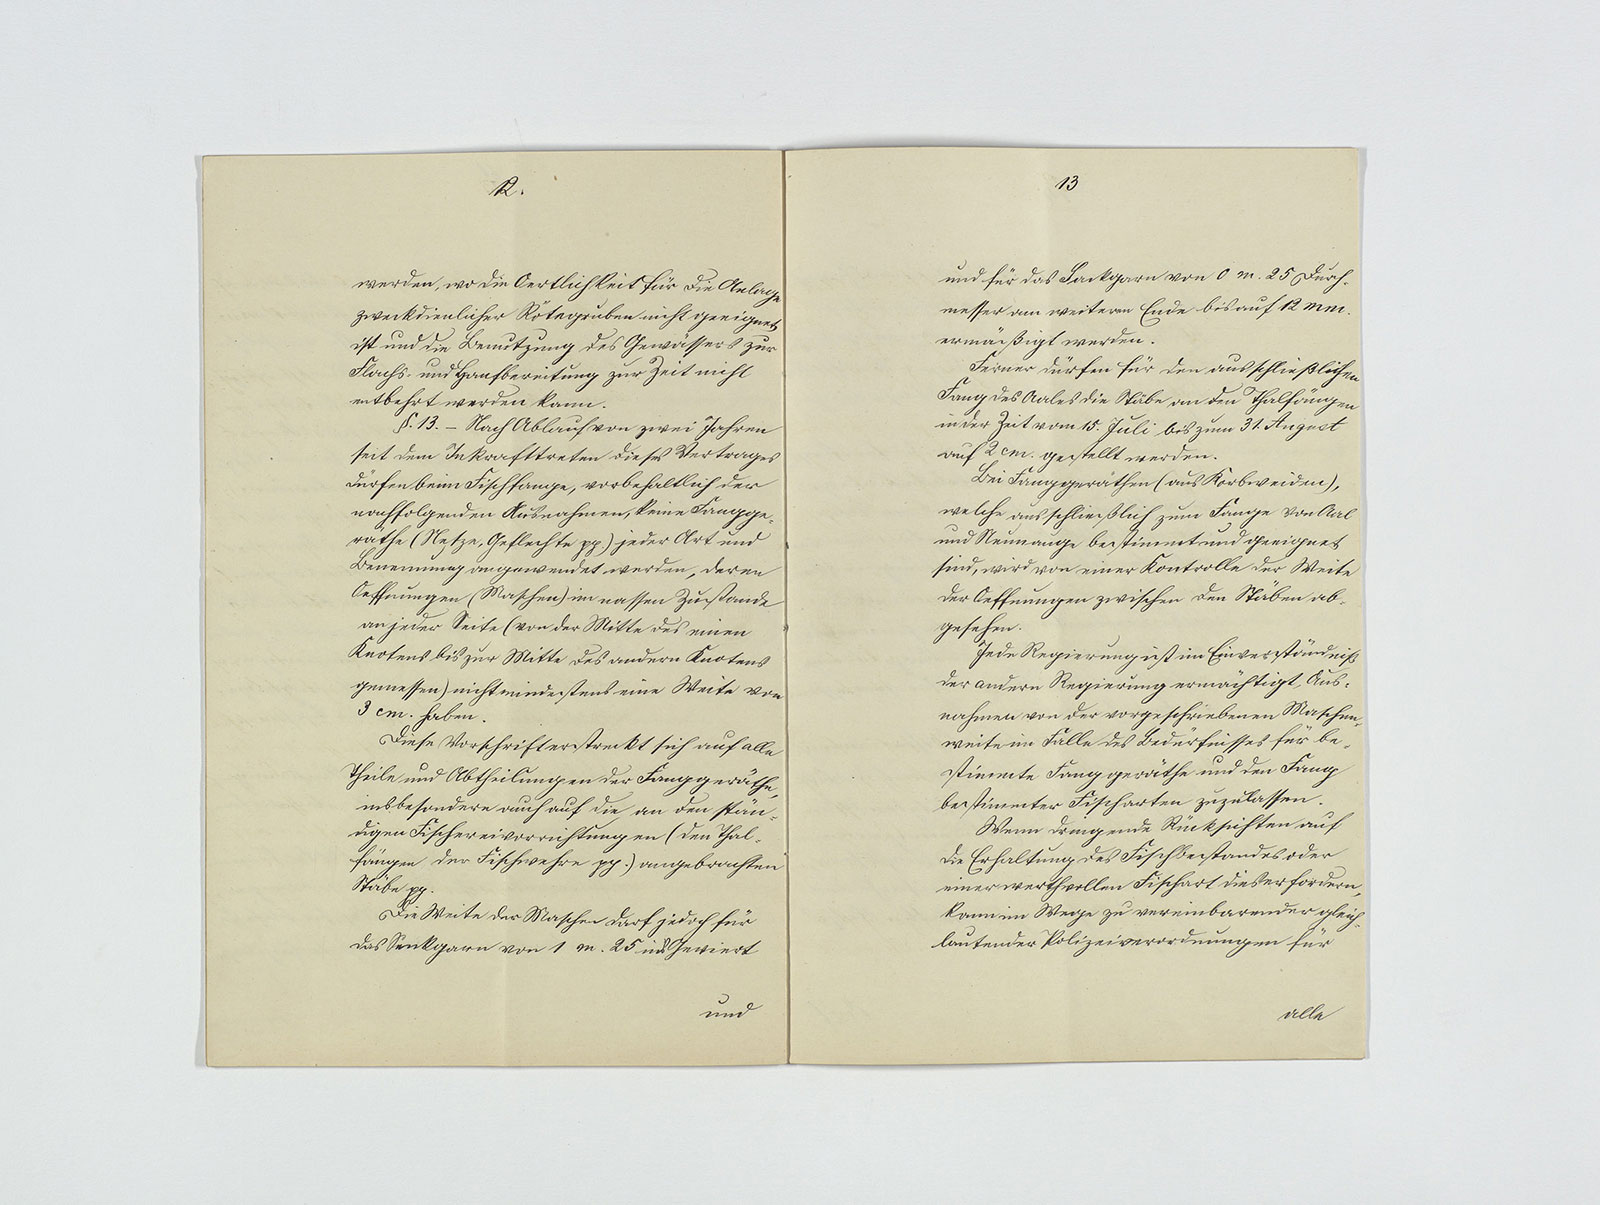 12.
werden, wo die Oertlichkeit für die Anlage
zweckdienlicher Rötegruben nicht geeignet
ist und die Benutzung des Gewässers zur
Flachs- und Hanfbereitung zur Zeit nicht
entbehrt werden kann.
§. 13. – Nach Ablauf von zwei Jahren
seit dem Inkrafttreten dieses Vertrages
dürfen beim Fischfange, vorbehaltlich der
nachfolgenden Ausnahmen, keine Fangge-
räthe (Netze, Geflechte pp) jeder Art und
Benennung angewendet werden, deren
Oeffnungen (Maschen) im nassen Zustande
an jeder Seite (von der Mitte des einen
Knotens bis zur Mitte des andern Knotens
gemessen) nicht mindestens eine Weite von
3 cm. haben.
Diese Vorschrift erstreckt sich auf alle
Theile und Abtheilungen der Fanggeräthe,
insbesondere auch auf die an den stän-
digen Fischereivorrichtungen (den Thal-
fängen der Fischwehre pp.) angebrachten
Stäbe pp.
Die Weite der Maschen darf jedoch für
das Senkgarn von 1 m. 25 ins Geviert
und
13
und für das Sackgarn von 0 m. 25 Durch-
messer am weiteren Ende bis auf 12 mm.
ermäßigt werden.
Ferner dürfen für den ausschließlichen
Fang des Aales die Stäbe an den Thalfängen
in der Zeit vom 15. Juli bis zum 31. August
auf 2 cm. gestellt werden.
Bei Fanggeräthen (aus Korbweiden),
welche ausschließlich zum Fange von Aal
und Neunauge bestimmt und geeignet
sind, wird von einer Kontrolle der Weite
der Oeffnungen zwischen den Stäben ab-
gesehen.
Jede Regierung ist im Einverständniß
der andern Regierung ermächtigt, Aus-
nahmen von der vorgeschriebenen Maschen-
weite im Falle des Bedürfnisses für be-
stimmte Fanggeräthe und den Fang
bestimmter Fischarten zuzulassen.
Wenn dringende Rücksichten auf
die Erhaltung des Fischbestandes oder
einer werthvollen Fischart dies erfordern,
kann im Wege zu vereinbarender gleich-
lautender Polizeiverordnungen für
alle